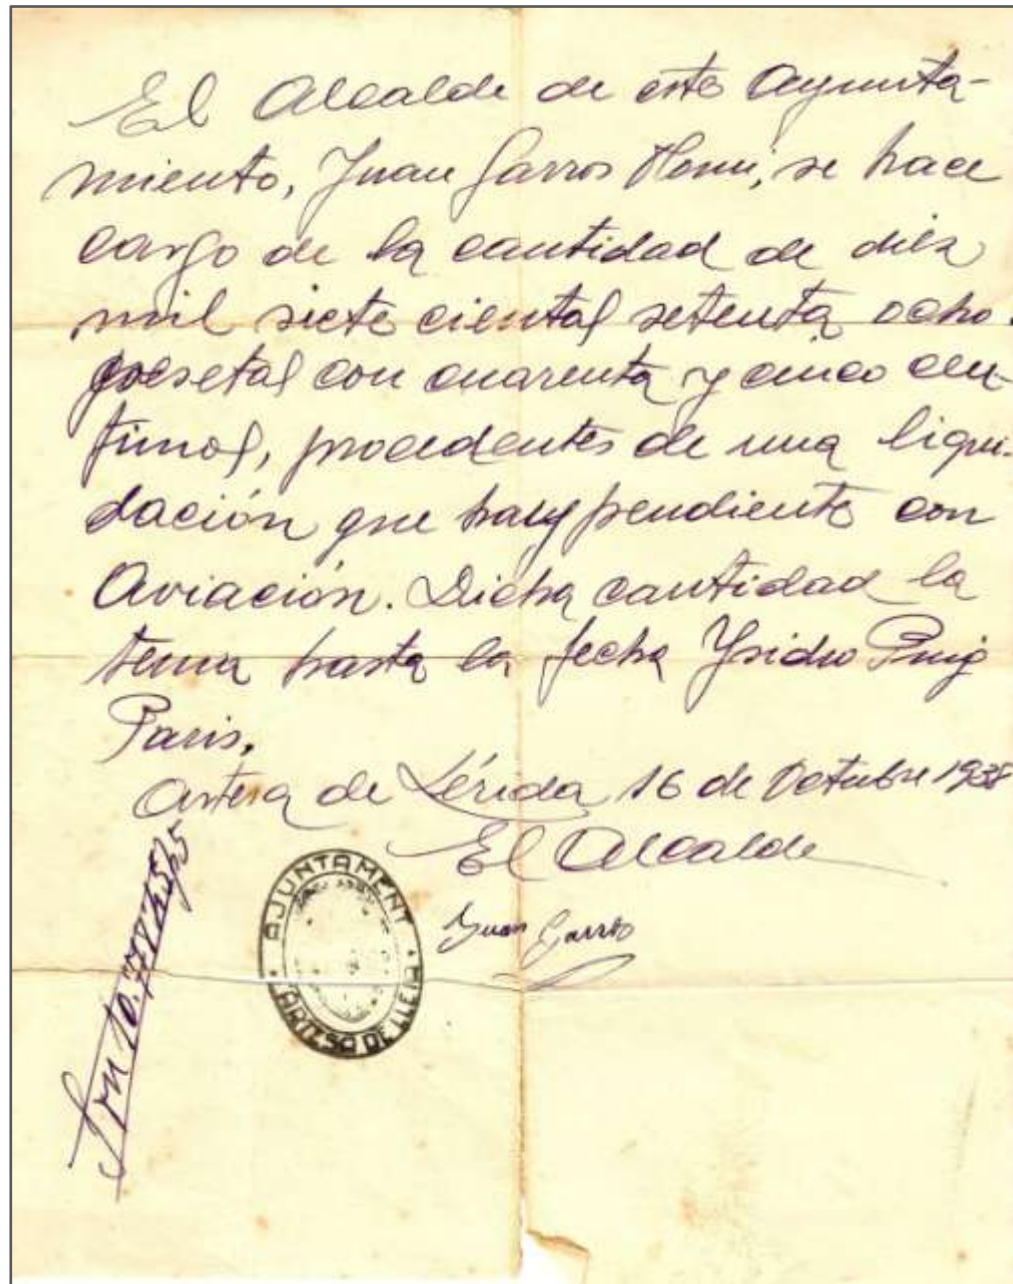 El Alcalde de este Ayunta-
miento, Juan Garros, se hace
cargo de la cantidad de diez
mil siete cientas setenta ocho
pesetas con cuarenta y cinco cen-
timos, procedentes de una liqui-
dación que hay pendiente con
Aviación. Dicha cantidad la
tenia hasta la fecha Ysidro Puig
Paris.
Artesa de Lérida 16 de Octubre 1938
El Alcalde
Juan Garrós
AJUNTAMENT
ARTESA DE LLEIDA
Son 10.778'45 pts